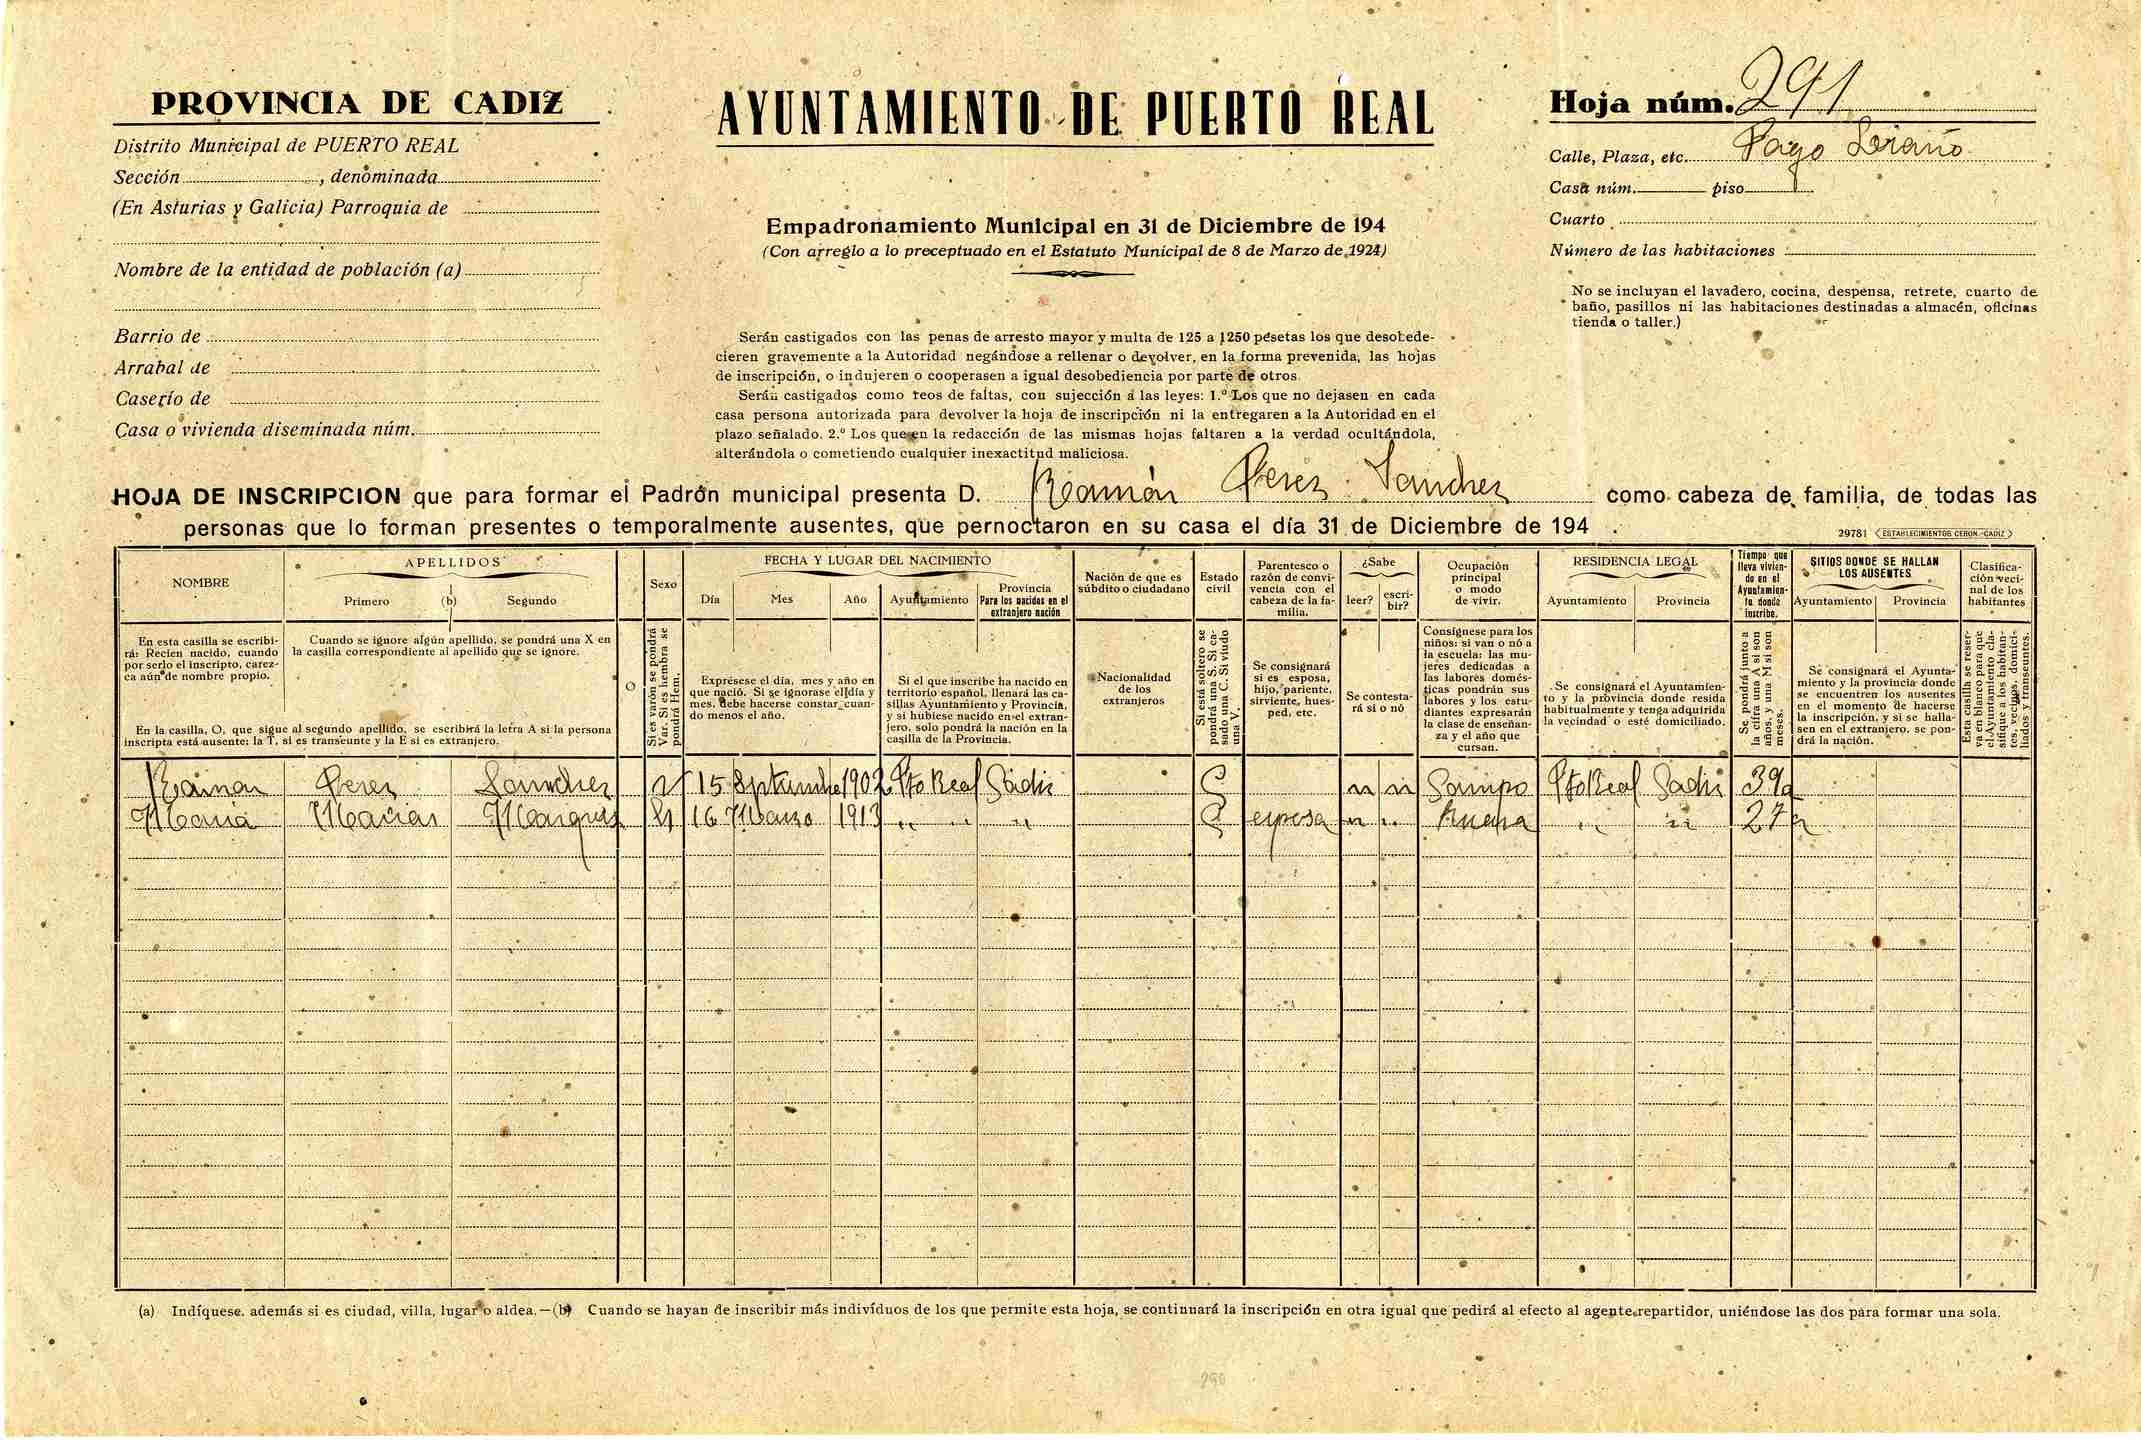 PROVINCIA DE CADIZ
Distrito Municipal de PUERTO REAL
Sección , denominada
(En Asturias y Galicia) Parroquia de
Nombre de la entidad de población (a)
Barrio de
Arrabal de
Caserío de
Casa o vivienda diseminada núm.
AYUNTAMIENTO DE PUERTO REAL
Empadronamiento Municipal en 31 de Diciembre de 194
(Con arreglo a lo preceptuado en el Estatuto Municipal de 8 de Marzo de 1924)
Serán castigados con las penas de arresto mayor y multa de 125 a 1250 pesetas los que desobede-
cieren gravemente a la Autoridad negándose a rellenar o devolver, en la forma prevenida, las hojas
de inscripción, o indujeren o cooperasen a igual desobediencia por parte de otros.
Serán castigados como reos de faltas, con sujección a las leyes: 1.º Los que no dejasen en cada
casa persona autorizada para devolver la hoja de inscripción ni la entregaren a la Autoridad en el
plazo señalado. 2.º Los que en la redacción de las mismas hojas faltaren a la verdad ocultándola,
alterándola o cometiendo cualquier inexactitud maliciosa.
Hoja núm. 291
Calle, Plaza, etc. Pago
Casa núm. piso
Cuarto
Número de las habitaciones
No se incluyan el lavadero, cocina, despensa, retrete, cuarto de
baño, pasillos ni las habitaciones destinadas a almacén, oficinas
tienda o taller.)
HOJA DE INSCRIPCION que para formar el Padrón municipal presenta D. Ramón Perez Sanchez como cabeza de familia, de todas las
personas que lo forman presentes o temporalmente ausentes, que pernoctaron en su casa el día 31 de Diciembre de 194 .
29781 (ESTABLECIMIENTOS CERON.-CADIZ)
NOMBRE
En esta casilla se escribi-
rá: Recien nacido, cuando
por serlo el inscripto, carez-
ca aún de nombre propio.
APELLIDOS
Primero (b) Segundo
Cuando se ignore algún apellido, se pondrá una X en
la casilla correspondiente al apellido que se ignore.
En la casilla, O, que sigue al segundo apellido, se escribirá la letra A si la persona
inscripta está ausente: la T, si es transeunte y la E si es extranjero.
O
Sexo
Si es varón se pondrá
Var. Si es hembra se
pondrá Hem.
FECHA Y LUGAR DEL NACIMIENTO
Día Mes Año Ayuntamiento
Provincia
Para los nacidos en el
extranjero nación
Exprésese el día, mes y año en
que nació. Si se ignorase el día y
mes, debe hacerse constar cuan-
do menos el año.
Si el que inscribe ha nacido en
territorio español, llenará las ca-
sillas Ayuntamiento y Provincia,
y si hubiese nacido en el extran-
jero, solo pondrá la nación en la
casilla de la Provincia.
Nación de que es
súbdito o ciudadano
Nacionalidad
de los
extranjeros
Estado
civil
Si está soltero se
pondrá una S. Si ca-
sado una C. Si viudo
una V.
Parentesco o
razón de convi-
vencia con el
cabeza de la fa-
milia.
Se consignará
si es esposa,
hijo, pariente,
sirviente, hues-
ped, etc.
¿Sabe
leer? escri-
bir?
Se contesta-
rá si o nó
Ocupación
principal
o modo
de vivir.
Consígnese para los
niños: si van o nó a
la escuela: las mu-
jeres dedicadas a
las labores domés-
ticas pondrán sus
labores y los estu-
diantes expresarán
la clase de enseñan-
za y el año que
cursan.
RESIDENCIA LEGAL
Ayuntamiento Provincia
Se consignará el Ayuntamien-
to y la provincia donde resida
habitualmente y tenga adquirida
la vecindad o esté domiciliado.
Tiempo que
lleva vivien-
do en el
Ayuntamien-
to donde
inscribe.
Se pondrá junto a
la cifra una A si son
años, y una M si son
meses.
SITIOS DONDE SE HALLAN
LOS AUSENTES
Ayuntamiento Provincia
Se consignará el Ayunta-
miento y la provincia donde
se encuentren los ausentes
en el momento de hacerse
la inscripción, y si se halla-
sen en el extranjero, se pon-
drá la nación.
Clasifica-
ción veci-
nal de los
habitantes
Esta casilla se reser-
va en blanco para que
el Ayuntamiento cla-
sifique a los habitan-
tes, vecinos, domici-
liados y transeuntes.
Ramon Perez Sanchez V 15 Septiembre 1902 Pto Real Cádiz C n n Campo Pto Real Cadiz 39 a
Maria Macias Marquez H 16 Marzo 1913 " " " C esposa " " " " 27 a
(a) Indíquese además si es ciudad, villa, lugar o aldea.—(b) Cuando se hayan de inscribir más indivíduos de los que permite esta hoja, se continuará la inscripción en otra igual que pedirá al efecto al agente repartidor, uniéndose las dos para formar una sola.
290